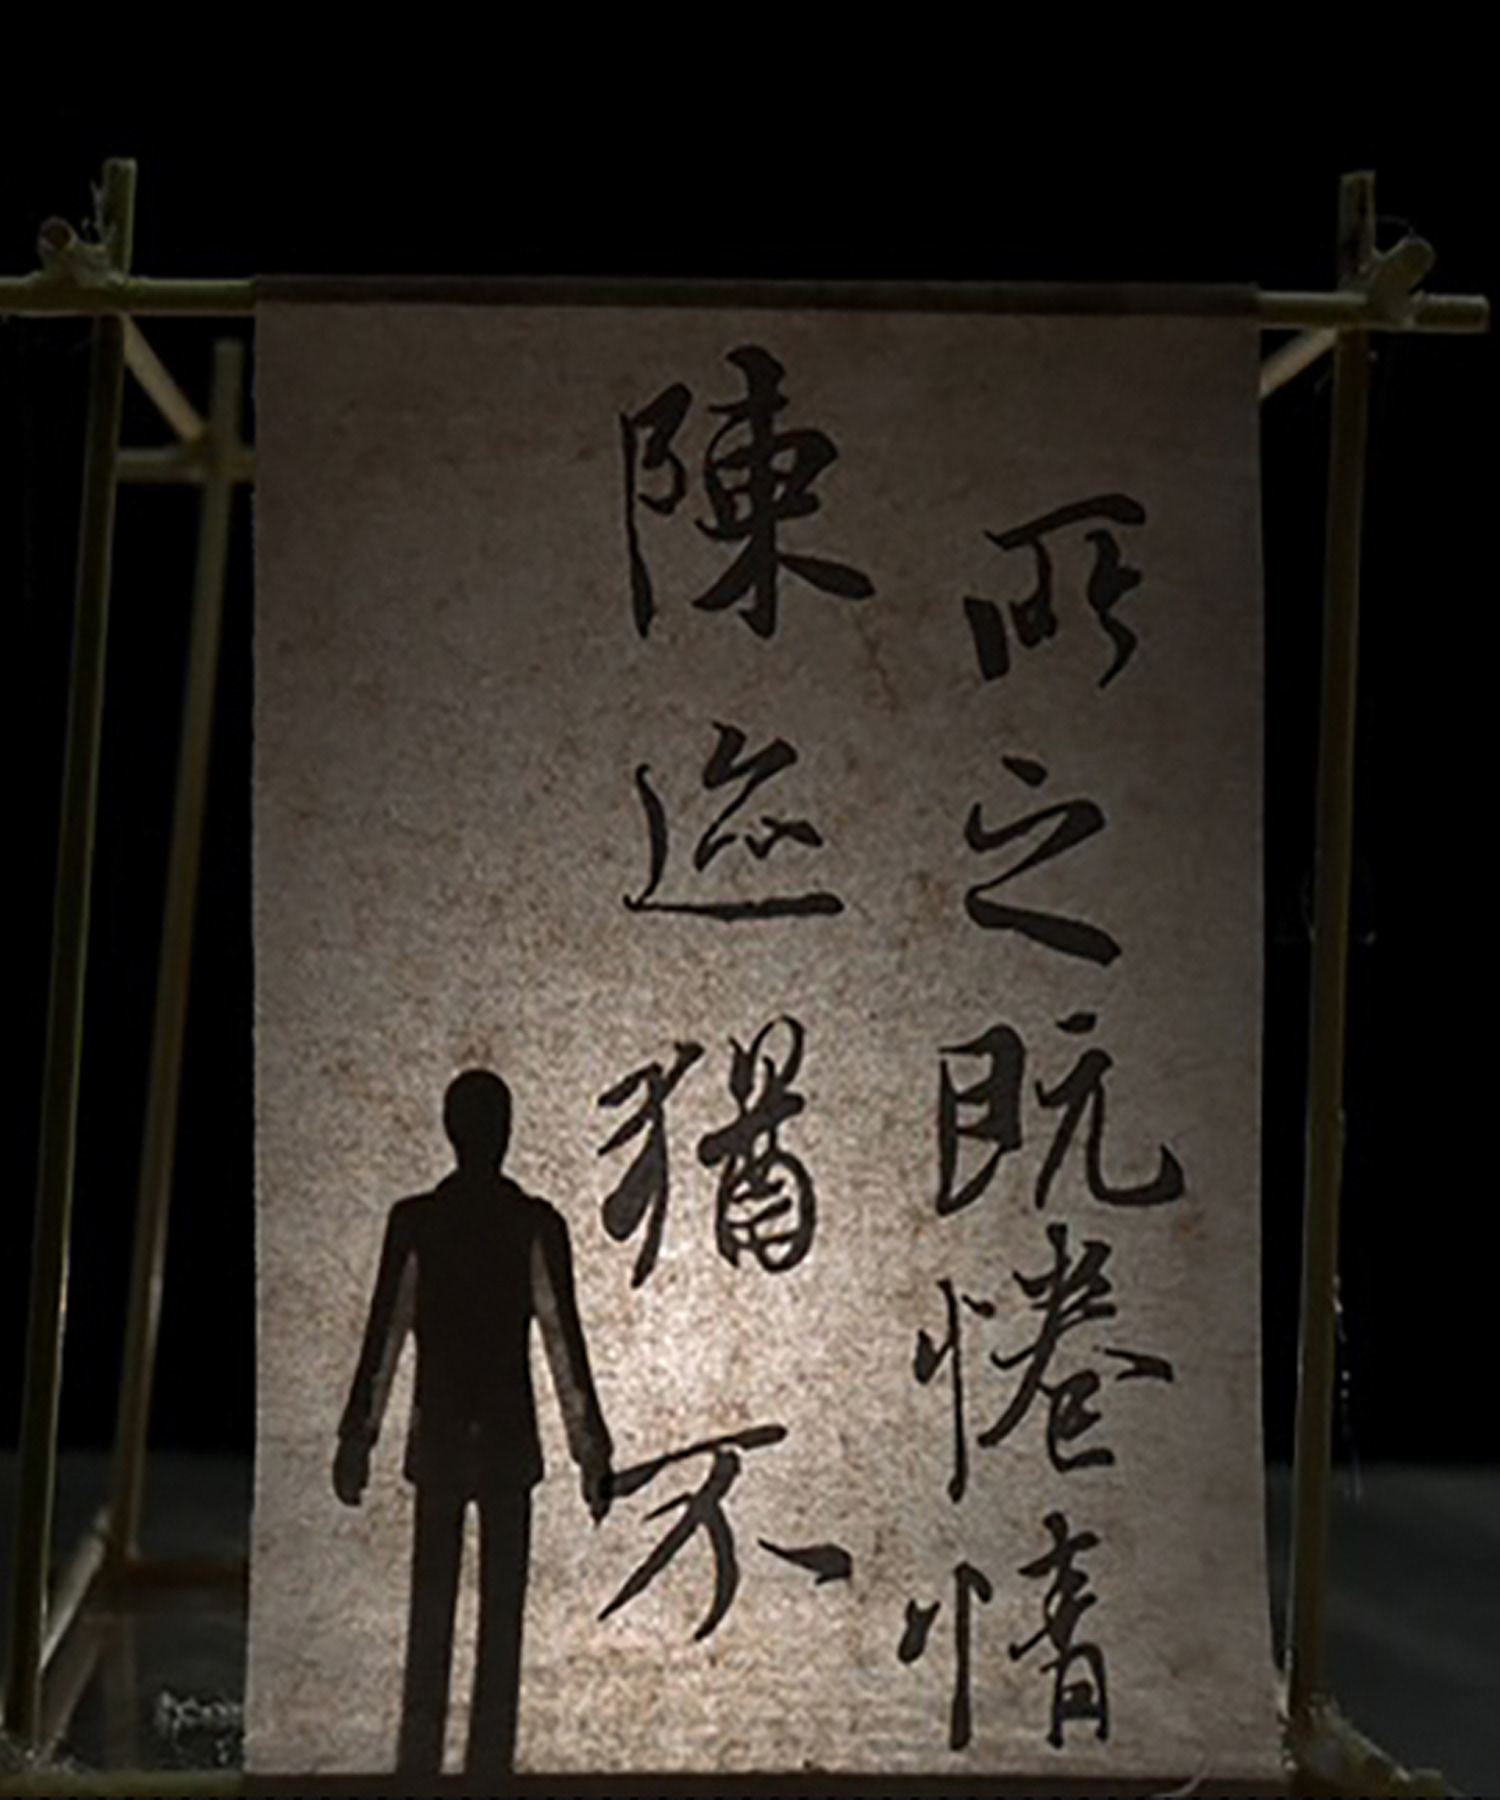 所之既惓情
陳迹猶不